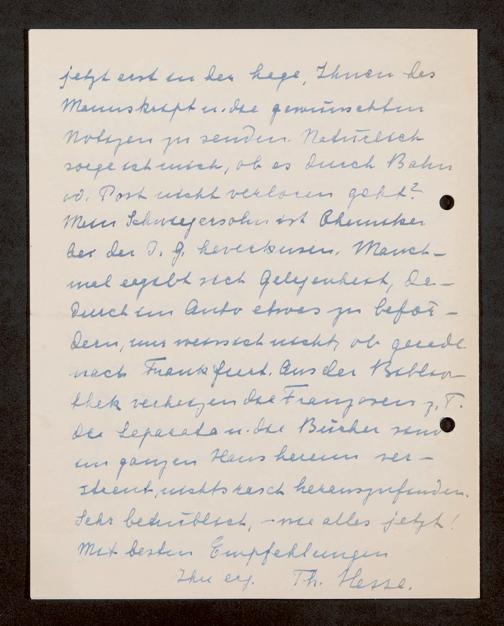 jetzt erst in der Lage, Ihnen das
Manuskript u. die gewünschten
Notizen zu senden. Natürlich
sorge ich mich, ob es durch Bahn
od. Post nicht verloren geht?
Mein Schwiegersohn ist Chemiker
bei der I. G. Leverkusen. Manch-
mal ergibt sich Gelegenheit, da-
durch im Auto etwas zu beför-
dern, nur weiss ich nicht, ob gerade
nach Frankfurt. Aus der Biblio-
thek verheizen die Franzosen z. T.
die Separata u. die Bücher sind
im ganzen Haus herum ver-
streut, nichts rasch herauszufinden.
Sehr betrüblich, - wie alles jetzt!
Mit besten Empfehlungen
Ihr erg. Th. Hesse.